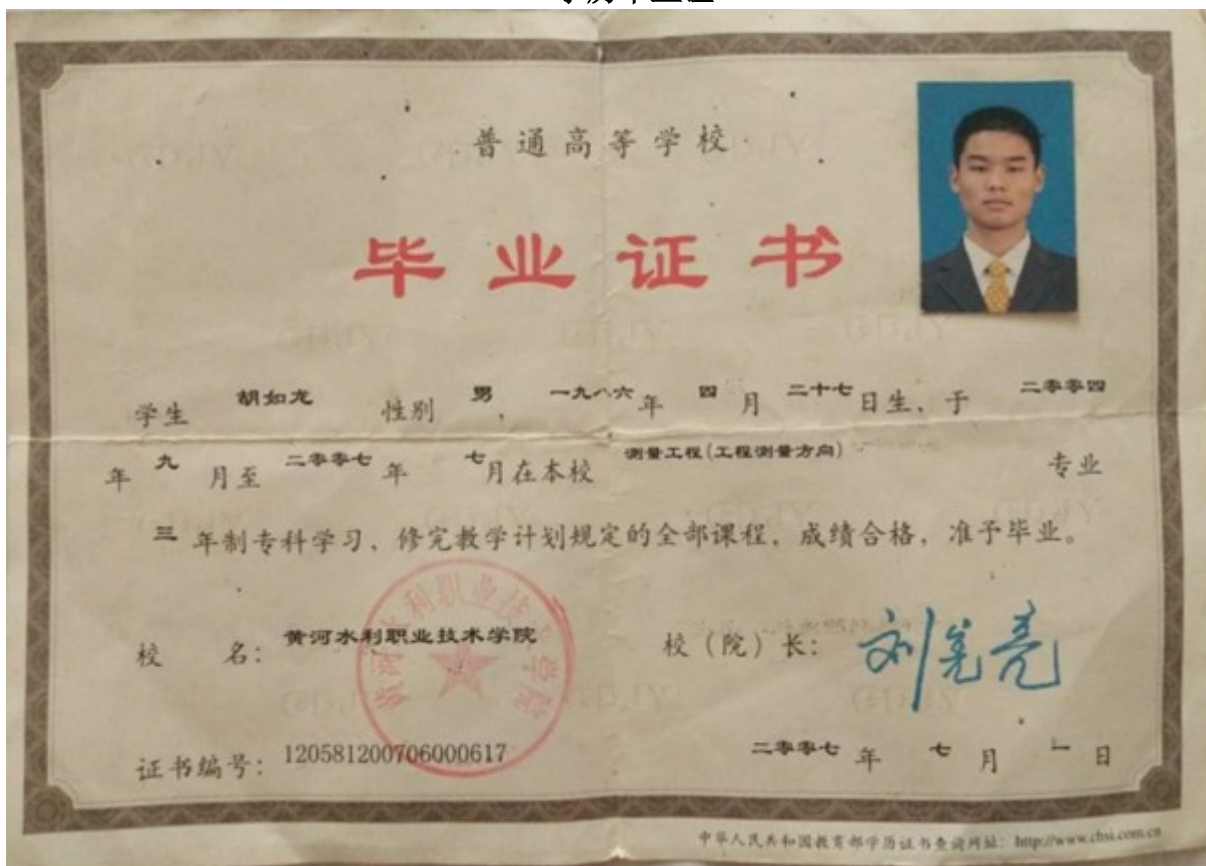 普通高等学校
毕业证书
学生 胡如龙 性别 男, 一九八六年 四月 二十七日生, 于 二零零四
年 九月至 二零零七年 七月在本校 测量工程(工程测量方向) 专业
三年制专科学习, 修完教学计划规定的全部课程, 成绩合格, 准予毕业。
校 名: 黄河水利职业技术学院 校(院)长: 刘宪亮
黄河水利职业技术学院
证书编号: 120581200706000617 二零零七年 七月 一日
中华人民共和国教育部学历证书查询网址: http://www.chsi.com.cn